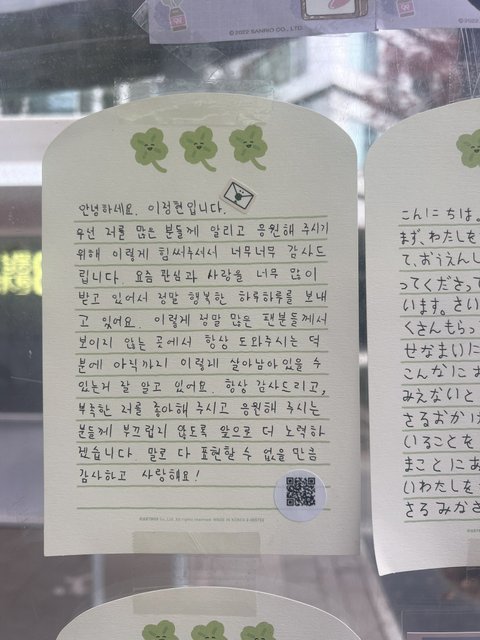 ©2022 SANRIO CO., LTD
안녕하세요. 이정현입니다.
우선 저를 많은 분들께 알리고 응원해 주시기
위해 이렇게 힘써주셔서 너무너무 감사드
립니다. 요즘 관심과 사랑을 너무 많이
받고 있어서 정말 행복한 하루하루를 보내
고 있어요. 이렇게 정말 많은 팬분들께서
보이지 않는 곳에서 항상 도와주시는 덕
분에 아직까지 이렇게 살아남아있을 수
있는거 잘 알고 있어요. 항상 감사드리고,
부족한 저를 좋아해 주시고 응원해 주시는
분들께 부끄럽지 않도록 앞으로 더 노력하
겠습니다. 말로 다 표현할 수 없을 만큼
감사하고 사랑해요!
こんにちは。
まず、わたしを
て、おうえんし
ってくださって
います。さい
くさんもらっ
せなまいに
こんなにお
みえないと
さるおかげ
いることを
まことにあ
いわたしを
さるみかさ